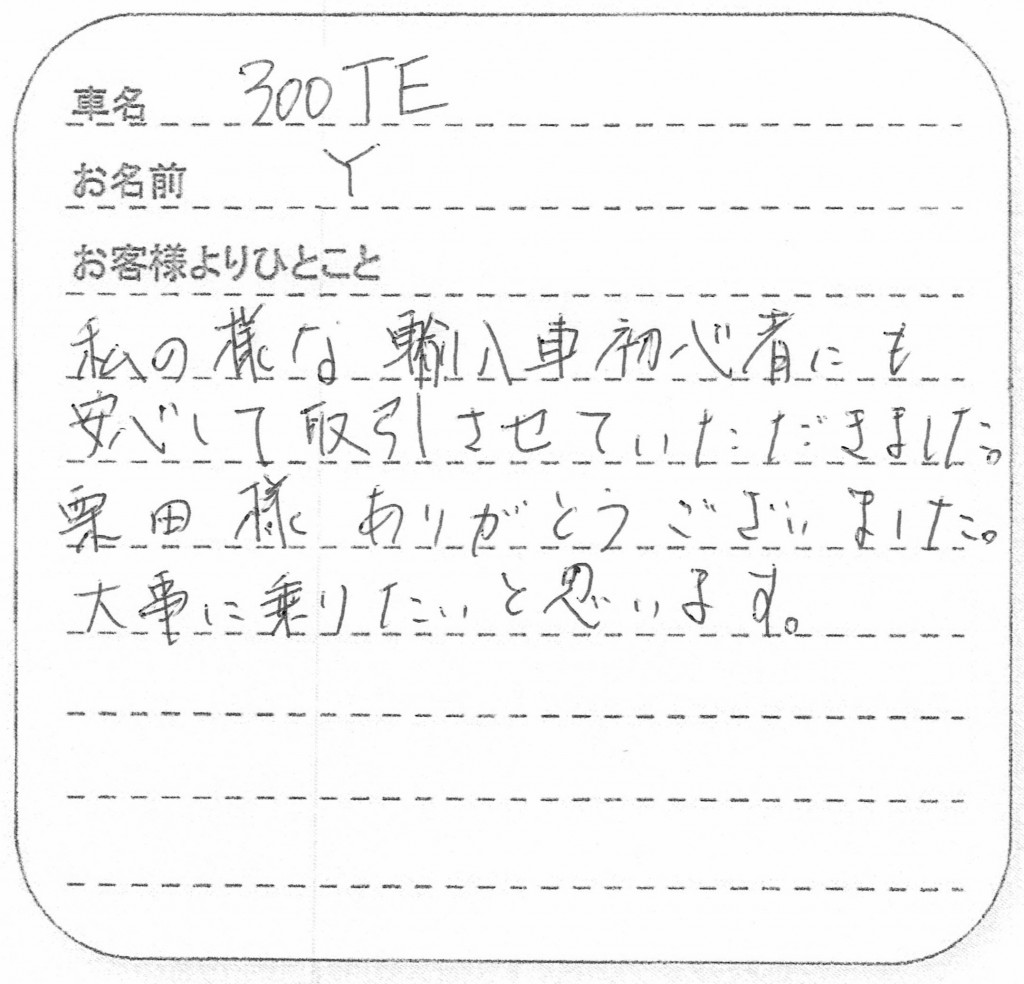 車名 300TE
お名前 Y
お客様よりひとこと
私の様な輸入車初心者にも
安心して取引させていただきました。
栗田様 ありがとうございました。
大事に乗りたいと思います。